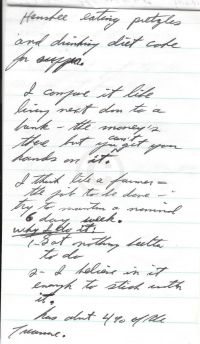 Henshel eating pretzles
and drinking diet coke
for supper.
I compare it like
living next door to a
bank - the money's
there but you can't get your
hands on it.
I think like a farmer -
the job to be done -
try to maintain a nominal
6 day week.
why do it?
1- Got nothing better
to do
2- I believe in it
enough to stick with
it.
has about 4% of the